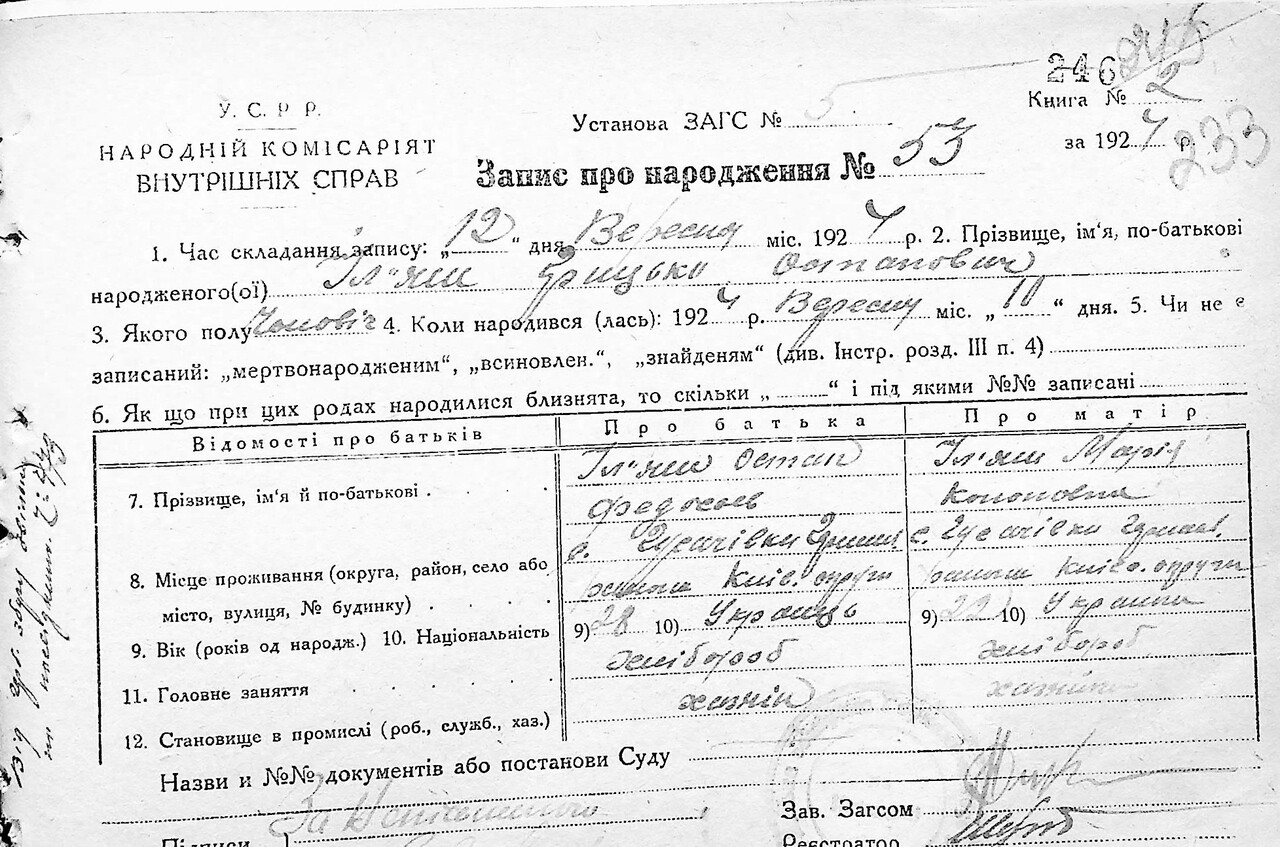 246
У. С. Р. Р.
НАРОДНІЙ КОМІСАРІЯТ
ВНУТРІШНІХ СПРАВ
Установа ЗАГС № 5
Книга № 2
за 1924 р.
233
Запис про народження № 53
1. Час складання запису: „12“ дня Вересня міс. 1924 р. 2. Прізвище, ім'я, по-батькові
народженого(ої) Іл'яш Грицько Остапович
3. Якого полу Чоловіч 4. Коли народився (лась): 1924 р. Вересня міс. „ 10 “ дня. 5. Чи не є
записаний: „мертвонародженим“, „всиновлен.“, „знайденям“ (див. Інстр. розд. III п. 4)
6. Як що при цих родах народилися близнята, то скільки „ “ і під якими №№ записані
Відомості про батьків Про батька Про матір
7. Прізвище, ім'я й по-батькові Іл'яш Остап Іл'яш Марія
Федосіев Кононовна
с. Гусачівки с. Гусачівки
8. Місце проживання (округа, район, село або района Київ. округи района Київ. округи
місто, вулиця, № будинку)
9. Вік (років од народж.) 10. Національність 9) 28 10) Українець 9) 22 10) Українка
11. Головне заняття хлібороб хлібороб
12. Становище в промислі (роб., служб., хаз.) хазяїн
Назви и №№ документів або постанови Суду
За
Зав. Загсом
Підписи
Реєстратор